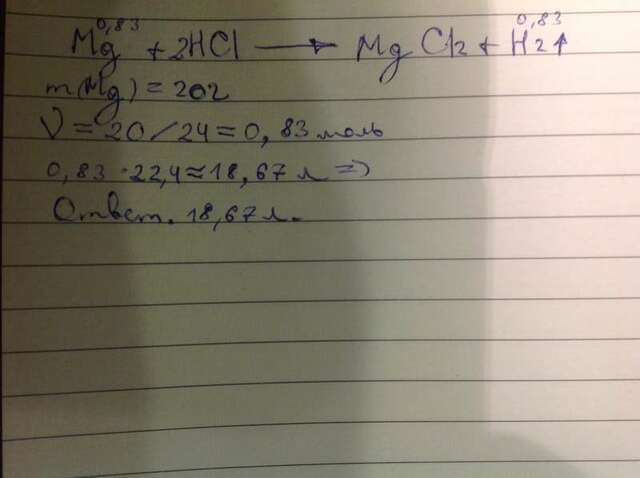 0,83 0,83
Mg + 2HCl → MgCl2 + H2↑
m(Mg) = 20г
ν = 20/24 = 0,83 моль
0,83 · 22,4 ≈ 18,67 л =>
Ответ. 18,67 л.